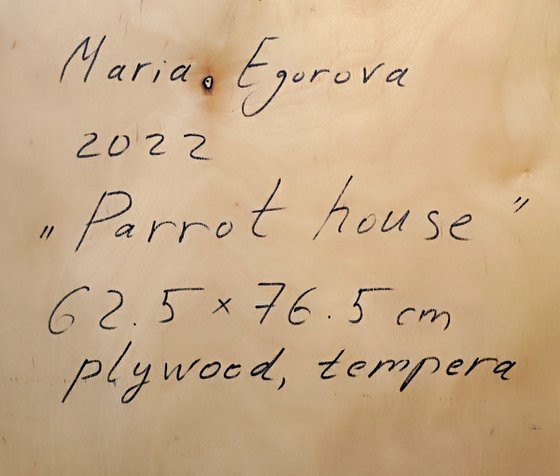 Maria Egorova
2022
„Parrot house"
62.5 × 76.5 cm
plywood, tempera